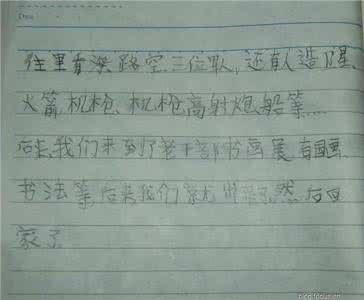 往里看深路空三位军人,还有人造卫星、
火箭机枪、机枪高射炮船等……
后来我们来到了老干部书画展有国画
书法等后来我们就 然后回
家了